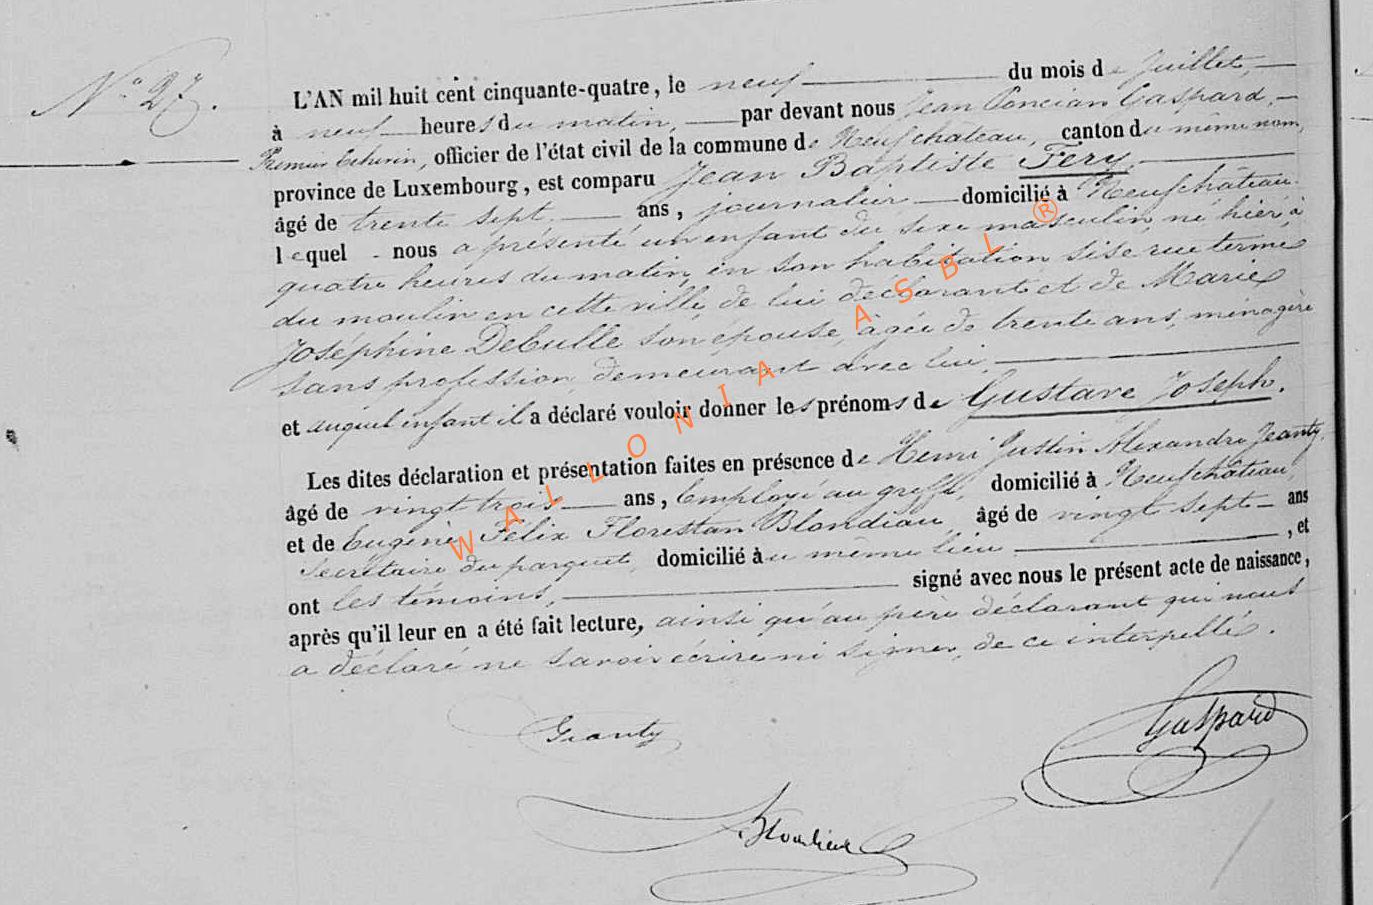 N° 27.
L'AN mil huit cent cinquante-quatre, le neuf du mois de Juillet,
à neuf heures du matin, par devant nous Jean Poncian Gaspard,
Premier Echevin, officier de l'état civil de la commune de Neufchâteau, canton du même nom,
province de Luxembourg, est comparu Jean Baptiste Fery,
âgé de trente sept ans, journalier domicilié à Neufchâteau
lequel nous a présenté un enfant du sexe masculin, né hier, à
quatre heures du matin, en son habitation, sise rue terme
du moulin en cette ville, de lui déclarant et de Marie
Joséphine Debulle son épouse, âgée de trente ans, ménagère
sans profession, demeurant avec lui,
et auquel enfant il a déclaré vouloir donner les prénoms de Gustave Joseph.
Les dites déclaration et présentation faites en présence de Henri Justin Alexandre Jeanty,
âgé de vingt trois ans, Employé au greffe, domicilié à Neufchâteau,
et de Eugène Félix Florestan Blondiau, âgé de vingt sept ans
Secrétaire du parquet, domicilié au même lieu, et
ont les témoins, signé avec nous le présent acte de naissance,
après qu'il leur en a été fait lecture, ainsi qu'au père déclarant qui nous
a déclaré ne savoir écrire ni signer, de ce interpellé.
Jeanty
Gaspard
Blondiau
WALLONIA ASBL ®